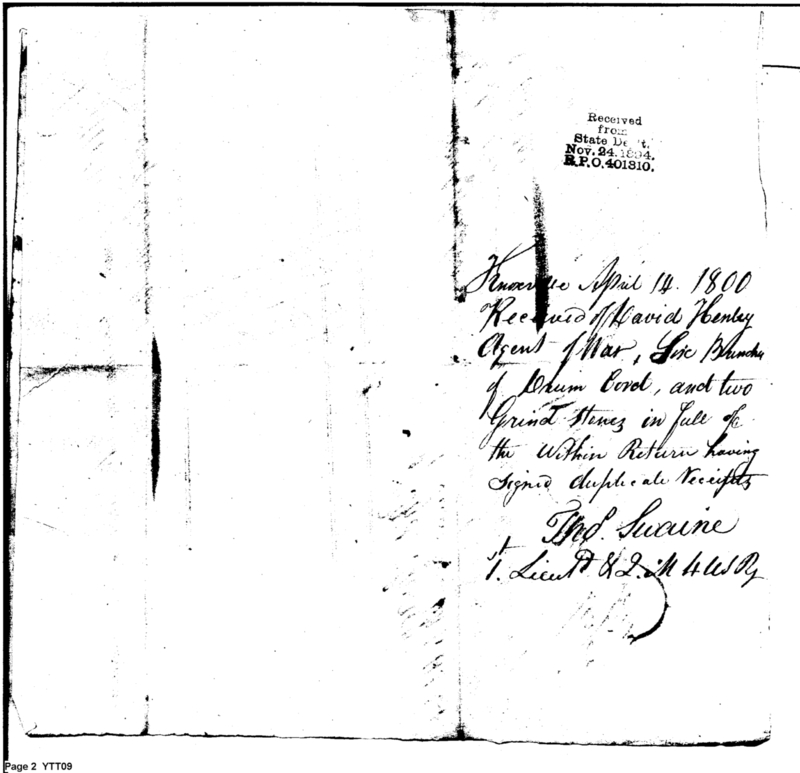 Received
from
State Dep't.
Nov. 24. 1894.
R.P.O. 401310.
Knoxville April 14. 1800
Received of David Henley
Agent of War, Six Bunches
of Drum Cord, and two
Grind stones in full of
the Within Return having
signed duplicate Receipts
Thos. Swaine
1st. Lieut & Q. M 4 US Rg
Page 2 YTT09